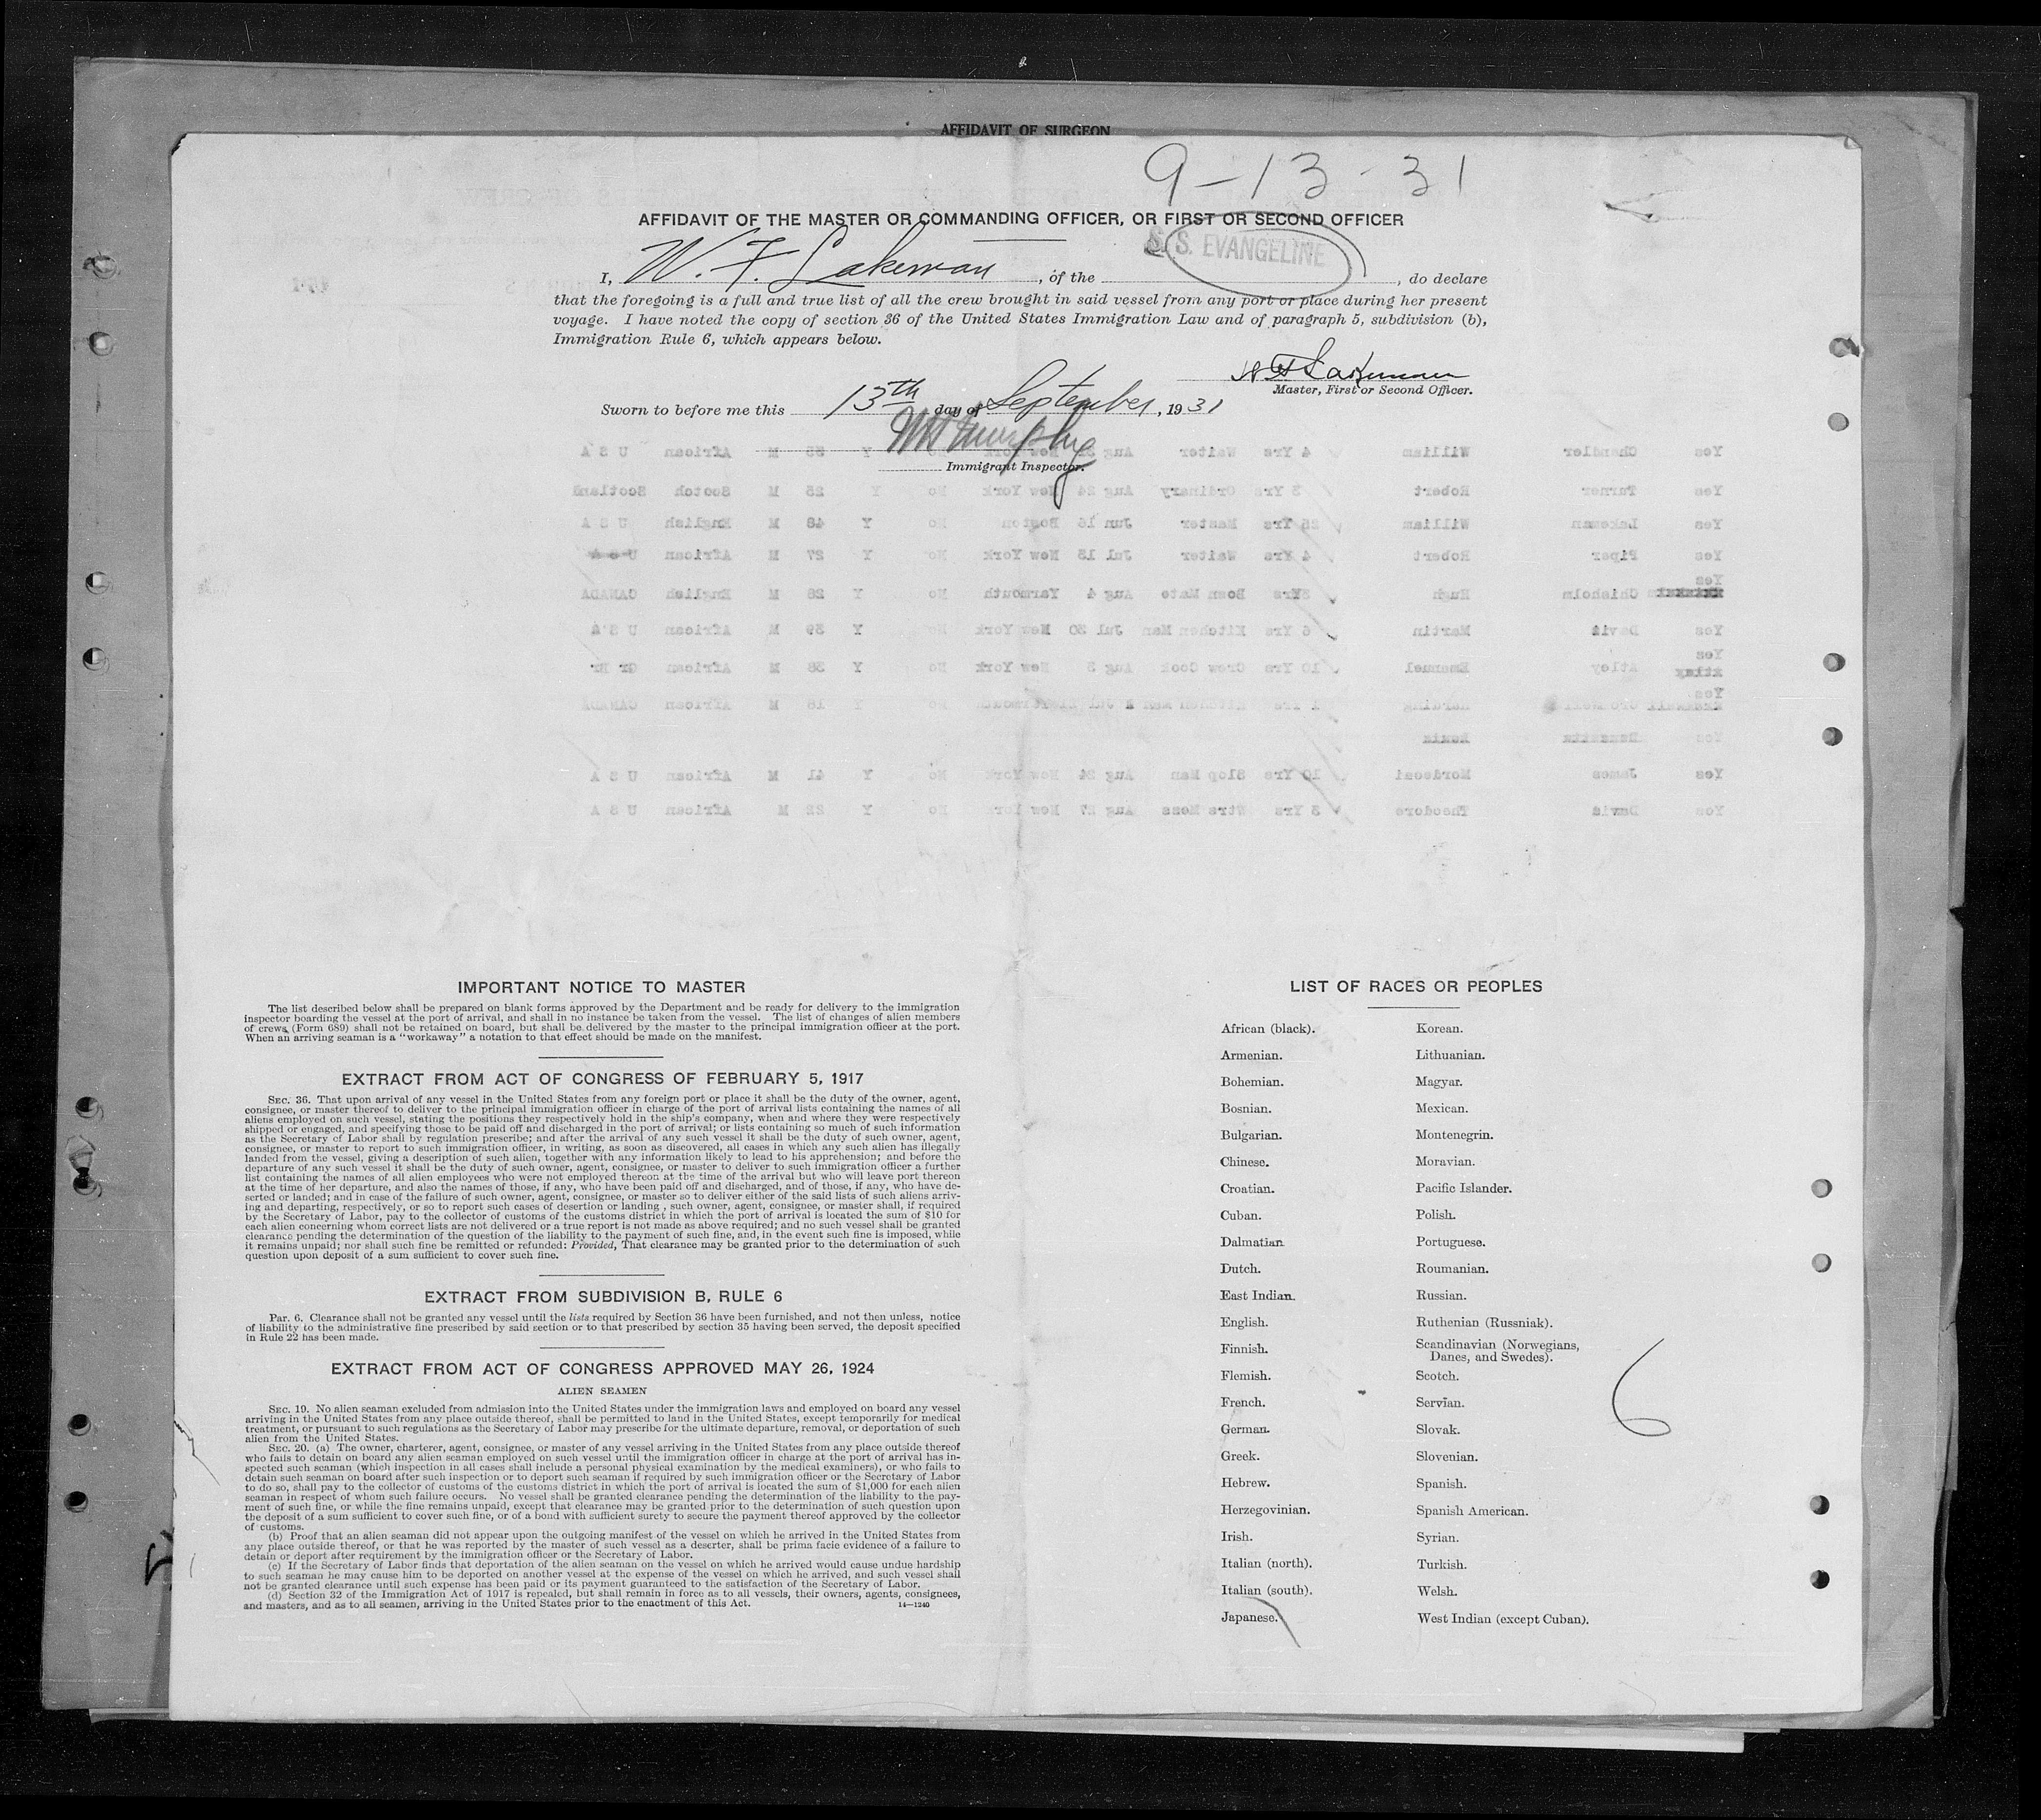 AFFIDAVIT OF SURGEON
9-13-31
AFFIDAVIT OF THE MASTER OR COMMANDING OFFICER, OR FIRST OR SECOND OFFICER
S. S. EVANGELINE
I, W. F. Lakeman, of the , do declare
that the foregoing is a full and true list of all the crew brought in said vessel from any port or place during her present
voyage. I have noted the copy of section 36 of the United States Immigration Law and of paragraph 5, subdivision (b),
Immigration Rule 6, which appears below.
W F Lakeman
Master, First or Second Officer.
Sworn to before me this 13th day of September, 1931
Murphy
Immigrant Inspector.
Yes Chandler William 4 Yrs Waiter Aug New York No Y 55 M African U S A
Yes Turner Robert 3 Yrs Ordinary Aug 24 New York No Y 25 M Scotch Scotland
Yes Lakeman William 25 Yrs Master Jun 16 Boston No Y 48 M English U S A
Yes Piper Robert 4 Yrs Waiter Jul 13 New York No Y 27 M African U S A
Yes
Chisholm Hugh Yrs Bosn Mate Aug 4 Yarmouth No Y 28 M English CANADA
Yes Davis Martin 6 Yrs Kitchen Man Jul 30 New York No Y 39 M African U S A
Yes
Atley Emanuel 10 Yrs Crew Cook Aug 3 New York No Y 38 M African Gr Br
Yes
Harding 1 Yrs Kitchen man Jul No Y 18 M African CANADA
Yes
Yes James Mordecai 10 Yrs Slop Man Aug 24 New York No Y 41 M African U S A
Yes Davis Theodore 3 Yrs Wtrs Mess Aug 27 New York No Y 22 M African U S A
IMPORTANT NOTICE TO MASTER
The list described below shall be prepared on blank forms approved by the Department and be ready for delivery to the immigration
inspector boarding the vessel at the port of arrival, and shall in no instance be taken from the vessel. The list of changes of alien members
of crews (Form 689) shall not be retained on board, but shall be delivered by the master to the principal immigration officer at the port.
When an arriving seaman is a "workaway" a notation to that effect should be made on the manifest.
EXTRACT FROM ACT OF CONGRESS OF FEBRUARY 5, 1917
SEC. 36. That upon arrival of any vessel in the United States from any foreign port or place it shall be the duty of the owner, agent,
consignee, or master thereof to deliver to the principal immigration officer in charge of the port of arrival lists containing the names of all
aliens employed on such vessel, stating the positions they respectively hold in the ship's company, when and where they were respectively
shipped or engaged, and specifying those to be paid off and discharged in the port of arrival; or lists containing so much of such information
as the Secretary of Labor shall by regulation prescribe; and after the arrival of any such vessel it shall be the duty of such owner, agent,
consignee, or master to report to such immigration officer, in writing, as soon as discovered, all cases in which any such alien has illegally
landed from the vessel, giving a description of such alien, together with any information likely to lead to his apprehension; and before the
departure of any such vessel it shall be the duty of such owner, agent, consignee, or master to deliver to such immigration officer a further
list containing the names of all alien employees who were not employed thereon at the time of the arrival but who will leave port thereon
at the time of her departure, and also the names of those, if any, who have been paid off and discharged, and of those, if any, who have de-
serted or landed; and in case of the failure of such owner, agent, consignee, or master so to deliver either of the said lists of such aliens arriv-
ing and departing, respectively, or so to report such cases of desertion or landing , such owner, agent, consignee, or master shall, if required
by the Secretary of Labor, pay to the collector of customs of the customs district in which the port of arrival is located the sum of $10 for
each alien concerning whom correct lists are not delivered or a true report is not made as above required; and no such vessel shall be granted
clearance pending the determination of the question of the liability to the payment of such fine, and, in the event such fine is imposed, while
it remains unpaid; nor shall such fine be remitted or refunded: Provided, That clearance may be granted prior to the determination of such
question upon deposit of a sum sufficient to cover such fine.
EXTRACT FROM SUBDIVISION B, RULE 6
Par. 6. Clearance shall not be granted any vessel until the lists required by Section 36 have been furnished, and not then unless, notice
of liability to the administrative fine prescribed by said section or to that prescribed by section 35 having been served, the deposit specified
in Rule 22 has been made.
EXTRACT FROM ACT OF CONGRESS APPROVED MAY 26, 1924
ALIEN SEAMEN
SEC. 19. No alien seaman excluded from admission into the United States under the immigration laws and employed on board any vessel
arriving in the United States from any place outside thereof, shall be permitted to land in the United States, except temporarily for medical
treatment, or pursuant to such regulations as the Secretary of Labor may prescribe for the ultimate departure, removal, or deportation of such
alien from the United States.
SEC. 20. (a) The owner, charterer, agent, consignee, or master of any vessel arriving in the United States from any place outside thereof
who fails to detain on board any alien seaman employed on such vessel until the immigration officer in charge at the port of arrival has in-
spected such seaman (which inspection in all cases shall include a personal physical examination by the medical examiners), or who fails to
detain such seaman on board after such inspection or to deport such seaman if required by such immigration officer or the Secretary of Labor
to do so, shall pay to the collector of customs of the customs district in which the port of arrival is located the sum of $1,000 for each alien
seaman in respect of whom such failure occurs. No vessel shall be granted clearance pending the determination of the liability to the pay-
ment of such fine, or while the fine remains unpaid, except that clearance may be granted prior to the determination of such question upon
the deposit of a sum sufficient to cover such fine, or of a bond with sufficient surety to secure the payment thereof approved by the collector
of customs.
(b) Proof that an alien seaman did not appear upon the outgoing manifest of the vessel on which he arrived in the United States from
any place outside thereof, or that he was reported by the master of such vessel as a deserter, shall be prima facie evidence of a failure to
detain or deport after requirement by the immigration officer or the Secretary of Labor.
(c) If the Secretary of Labor finds that deportation of the alien seaman on the vessel on which he arrived would cause undue hardship
to such seaman he may cause him to be deported on another vessel at the expense of the vessel on which he arrived, and such vessel shall
not be granted clearance until such expense has been paid or its payment guaranteed to the satisfaction of the Secretary of Labor.
(d) Section 32 of the Immigration Act of 1917 is repealed, but shall remain in force as to all vessels, their owners, agents, consignees,
and masters, and as to all seamen, arriving in the United States prior to the enactment of this Act.
14—1240
LIST OF RACES OR PEOPLES
African (black).
Armenian.
Bohemian.
Bosnian.
Bulgarian.
Chinese.
Croatian.
Cuban.
Dalmatian
Dutch.
East Indian.
English.
Finnish.
Flemish.
French.
German.
Greek.
Hebrew.
Herzegovinian.
Irish.
Italian (north).
Italian (south).
Japanese.
Korean.
Lithuanian.
Magyar.
Mexican.
Montenegrin.
Moravian.
Pacific Islander.
Polish.
Portuguese.
Roumanian.
Russian.
Ruthenian (Russniak).
Scandinavian (Norwegians,
Danes, and Swedes).
Scotch.
Servian.
Slovak.
Slovenian.
Spanish.
Spanish American.
Syrian.
Turkish.
Welsh.
West Indian (except Cuban).
6